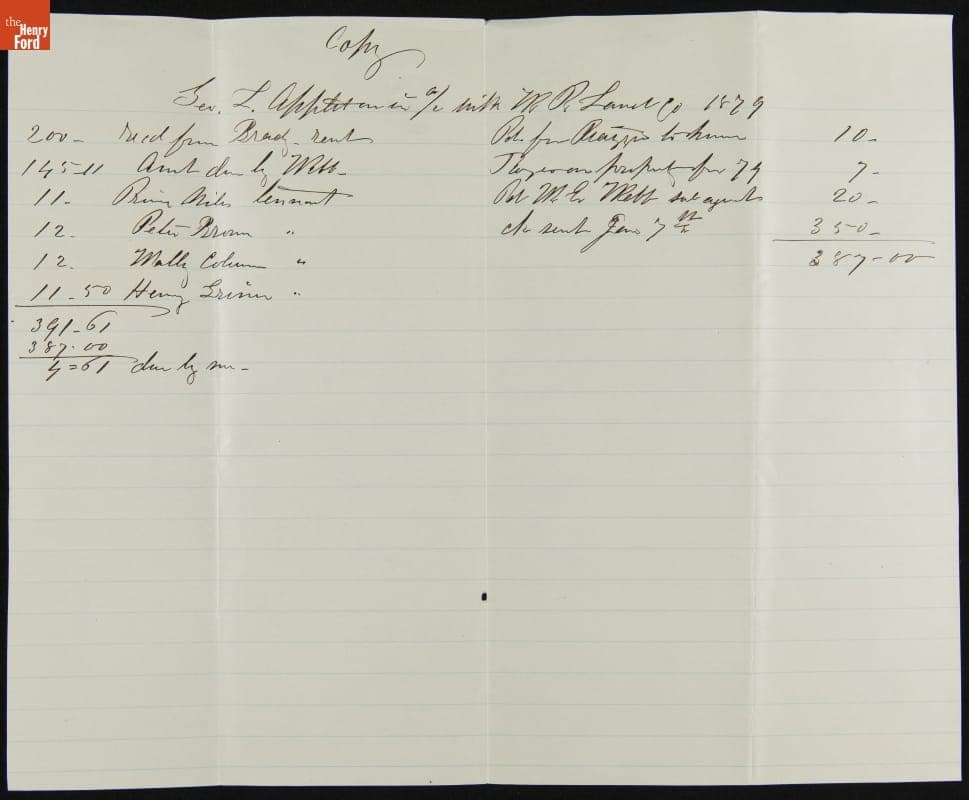 the
Henry
Ford
Copy
Geo. L. Appleton in a/c with W. R. Land Co 1879
200 - recd from Brady - rents
145-11 Amt due by Webb -
11. Prime Niles tennant
12. Peter Brown "
12. Molly "
11-50 Henry "
391-61
387.00
4=61 due by me -
Pd. for 10 -
Taxes on property for 79 7 -
Pd M. E. Webb sub agents 20 -
ck sent Jany 7th 350 -
387-00